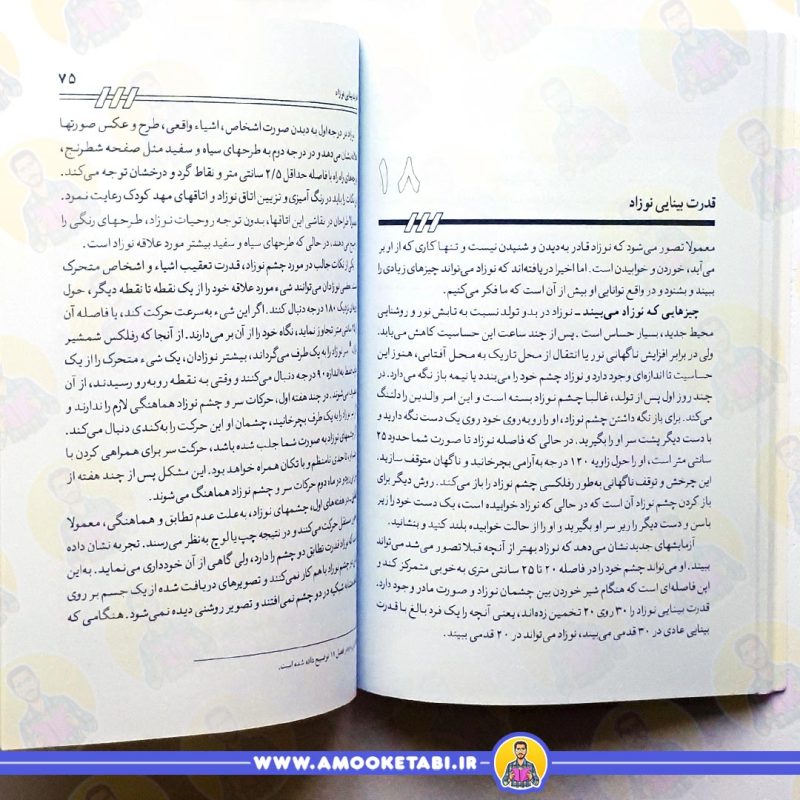 ۱۸
قدرت بینایی نوزاد
معمولا تصور می‌شود که نوزاد قادر به دیدن و شنیدن نیست و تنها کاری که از او بر
می‌آید، خوردن و خوابیدن است. اما اخیرا دریافته‌اند که نوزاد می‌تواند چیزهای زیادی را
ببیند و بشنود و در واقع توانایی او بیش از آن است که ما فکر می‌کنیم.
چیزهایی که نوزاد می‌بیند ـ نوزاد در بدو تولد نسبت به تابش نور و روشنایی
محیط جدید، بسیار حساس است. پس از چند ساعت این حساسیت کاهش می‌یابد.
ولی در برابر افزایش ناگهانی نور یا انتقال از محل تاریک به محل آفتابی، هنوز این
حساسیت تا اندازه‌ای وجود دارد و نوزاد چشم خود را می‌بندد یا نیمه باز نگه می‌دارد. در
چند روز اول پس از تولد، غالبا چشم نوزاد بسته است و این امر والدین را دلتنگ
می‌کند. برای باز نگه داشتن چشم نوزاد، او را روبه‌روی خود روی یک دست نگه دارید و
با دست دیگر پشت سر او را بگیرید. در حالی که فاصله نوزاد تا صورت شما حدود ۲۵
سانتی متر است، او را حول زاویه ۱۲۰ درجه به‌آرامی بچرخانید و ناگهان متوقف سازید.
این چرخش و توقف ناگهانی به‌طور رفلکسی چشم نوزاد را باز می‌کند. روش دیگر برای
باز کردن چشم نوزاد آن است که در حالی که نوزاد خوابیده است، یک دست خود را زیر
باسن و دست دیگر را زیر سر او بگیرید و او را از حالت خوابیده بلند کنید و بنشانید.
آزمایشهای جدید نشان می‌دهد که نوزاد بهتر از آنچه قبلا تصور می‌شد می‌تواند
ببیند. او می‌تواند چشم خود را در فاصله ۲۰ تا ۲۵ سانتی متری به‌خوبی متمرکز کند و
این فاصله‌ای است که هنگام شیر خوردن بین چشمان نوزاد و صورت مادر وجود دارد.
قدرت بینایی نوزاد را ۳۰ روی ۲۰ تخمین زده‌اند، یعنی آنچه را یک فرد بالغ با قدرت
بینایی عادی در ۳۰ قدمی می‌بیند، نوزاد می‌تواند در ۲۰ قدمی ببیند.
بینایی نوزاد ۷۵
در درجه اول به دیدن صورت اشخاص، اشیاء واقعی، طرح و عکس صورتها
نشان می‌دهد و در درجه دوم به طرحهای سیاه و سفید مثل صفحه شطرنج،
راه راه با فاصله حداقل ۲/۵ سانتی متر و نقاط گرد و درخشان توجه می‌کند.
را باید در رنگ آمیزی و تزیین اتاق نوزاد و اتاقهای مهد کودک رعایت نمود.
طراحان در نقاشی این اتاقها، بدون توجه روحیات نوزاد، طرحهای رنگی را
می‌دهند، در حالی که طرحهای سیاه و سفید بیشتر مورد علاقه نوزاد است.
یکی از نکات جالب در مورد چشم نوزاد، قدرت تعقیب اشیاء و اشخاص متحرک
نوزادان می‌توانند شیء مورد علاقه خود را از یک نقطه تا نقطه دیگر، حول
نزدیک ۱۸۰ درجه دنبال کنند. اگر این شیء به‌سرعت حرکت کند، یا فاصله آن
سانتی متر تجاوز نماید، نگاه خود را از آن بر می‌دارند. از آنجا که رفلکس شمشیر
سر نوزاد را به یک طرف می‌گرداند، بیشتر نوزادان، یک شیء متحرک را از یک
به اندازه ۹۰ درجه دنبال می‌کنند و وقتی به نقطه روبه‌رو رسیدند، از آن
می‌شوند. در چند هفته اول، حرکات سر و چشم نوزاد هماهنگی لازم را ندارند و
سر نوزاد را به یک طرف بچرخانید، چشمان او این حرکت را به‌کندی دنبال می‌کند.
چشمهای نوزاد به صورت شما جلب شده باشد، حرکت سر برای همراهی کردن با
تا حدی نامنظم و با تکان همراه خواهد بود. این مشکل پس از چند هفته از
می‌رود و در ماه دوم حرکات سر و چشم نوزاد هماهنگ می‌شوند.
در هفته‌های اول، چشمهای نوزاد، به‌علت عدم تطابق و هماهنگی، معمولا
مستقل حرکت می‌کنند و در نتیجه چپ یا لوچ به‌نظر می‌رسند. تجربه نشان داده
که نوزاد قدرت تطابق دو چشم را دارد، ولی گاهی از آن خودداری می‌نماید. به‌این
چشم نوزاد با هم کار نمی‌کنند و تصویرهای دریافت شده از یک جسم بر روی
شبکیه در دو چشم نمی افتند و تصویر روشنی دیده نمی‌شود. هنگامی که
فصل ۱۱ توضیح داده شده است.
WWW.AMOOKETABI.IR